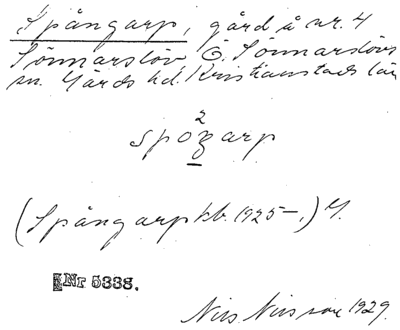 Spångarp, gård å nr. 4
Sönnarslöv, Ö. Sönnarslövs
sn. Gärds hd. Kristianstads län
2
spoŋarp
(Spångarp kb. 1925–,) 
Nr 5338.
Nils Nilsson 1929.